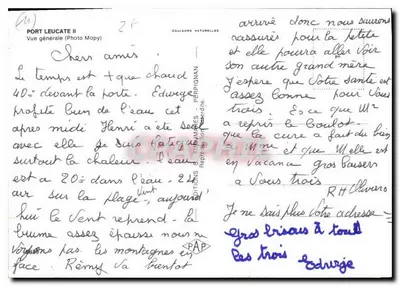 PORT LEUCATE II
Vue générale (Photo Mopy)
COULEURS NATURELLES
Chers amis.
Le temps est + que chaud
40° devant la porte. Edwige
profite bien de l'eau cet
apres midi Henri a été seul
avec elle je suis fatiguée
surtout la chaleur. l'eau
est a 20° dans l'eau - 24
air sur la plage, aujourd'
Vent
hui le Vent reprend - la
brume assez épaisse nous ne
voyons pas les montagnes en
face. Rémy va bientot
PAP
arrivé donc nous saurons
rassurés pour la petite
et elle pourra aller voir
son autre grand mère
J'espere que Votre santé est
assez bonne pour Vous
trois. Es ce que Mr
a repris le Boulot -
que la cure a fait du bien
a Mme et que Melle est
en Vacance gros baisers
a Vous trois
Je ne sais plus Votre adresse =
Gros bisous à tout
les trois
Edwige